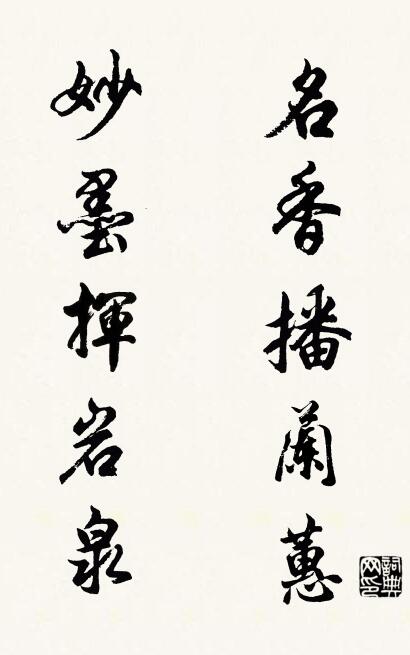 名香播蘭蕙
妙墨揮岩泉
詞典网印